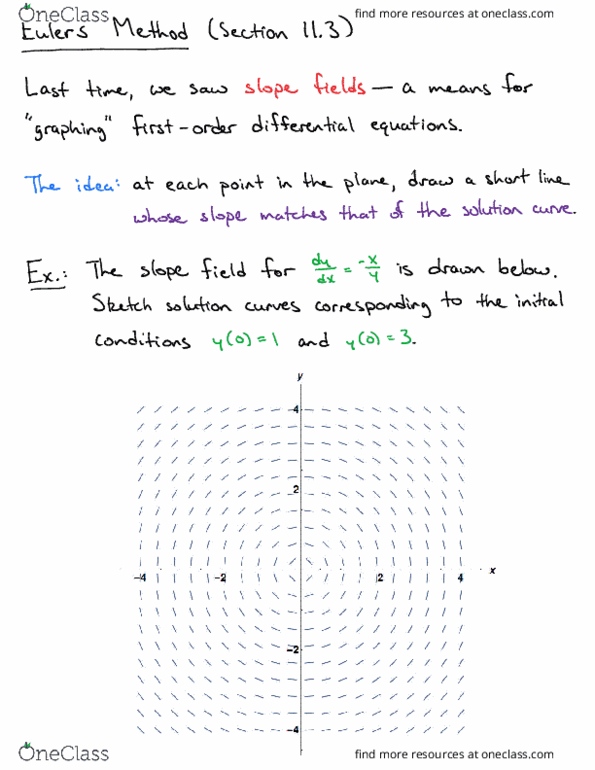 OneClass
find more resources at oneclass.com
Eulers Method (Section 11.3)
Last time, we saw slope fields — a means for
"graphing" first-order differential equations.
The idea: at each point in the plane, draw a short line
whose slope matches that of the solution curve.
Ex.: The slope field for dy/dx = -x/y is drawn below.
Sketch solution curves corresponding to the initial
conditions y(0)=1 and y(0)=3.
y
4
2
-4 -2 2 4 x
-2
-4
OneClass
find more resources at oneclass.com